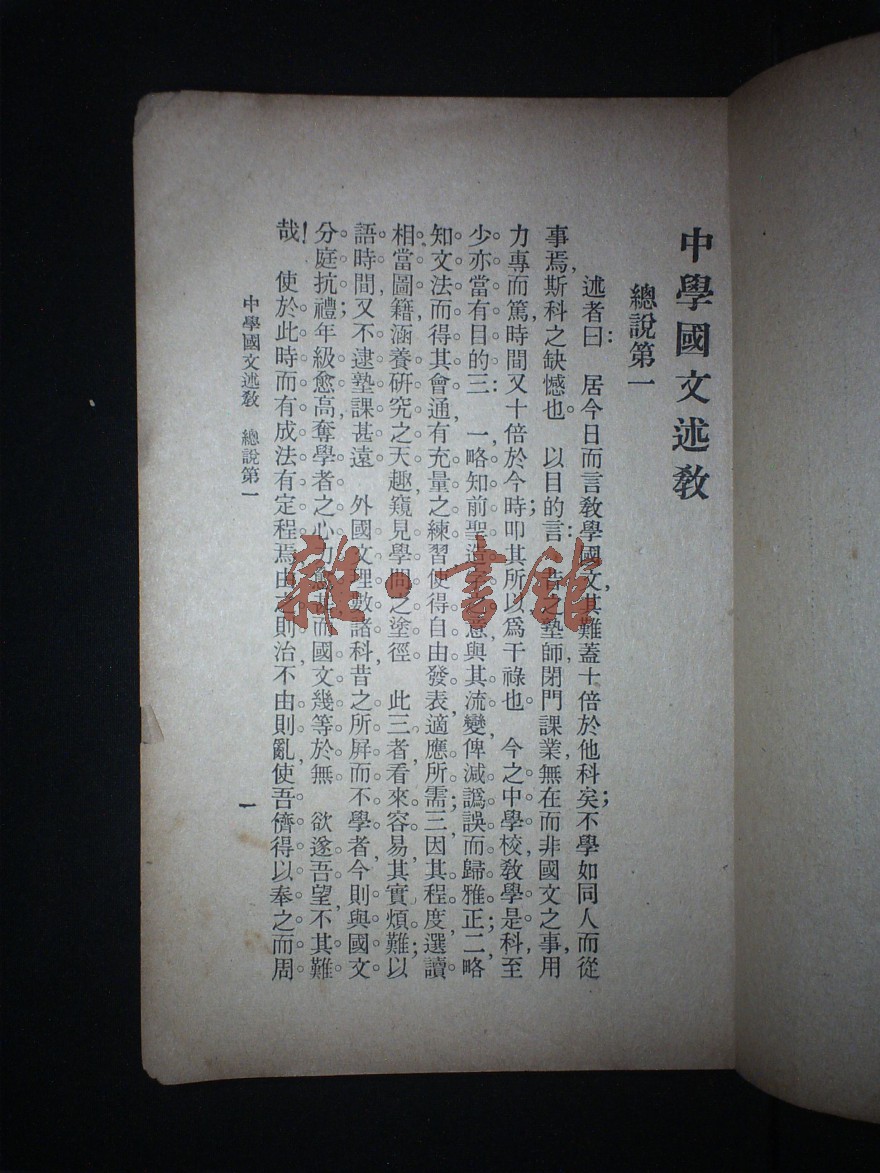 中學國文述教
總說第一
述者曰：居今日而言教學國文，其難蓋十倍於他科矣；不學如同人而從
事焉，斯科之缺憾也。以目的言：昔之塾師，閉門課業，無在而非國文之事，用
力專而篤，時間又十倍於今時；叩其所以，爲干祿也。今之中學校教學是科，至
少亦當有目的三：一，略知前聖造字之意與其流變，俾減譌誤而歸雅正；二，略
知文法而得其會通，有充量之練習，使得自由發表，適應所需；三，因其程度，選讀
相當圖籍，涵養研究之天趣，窺見學問之塗徑。此三者，看來容易，其實煩難；以
語時間，又不逮塾課甚遠。外國文理數諸科，昔之所屛而不學者，今則與國文
分庭抗禮；年級愈高，奪學者之心力愈而國文幾等於無。欲遂吾望，不其難
哉！使於此時而有成法有定程焉，由之則治，不由則亂，使吾儕得以奉之而周
中學國文述教　總說第一
一
雜·書館